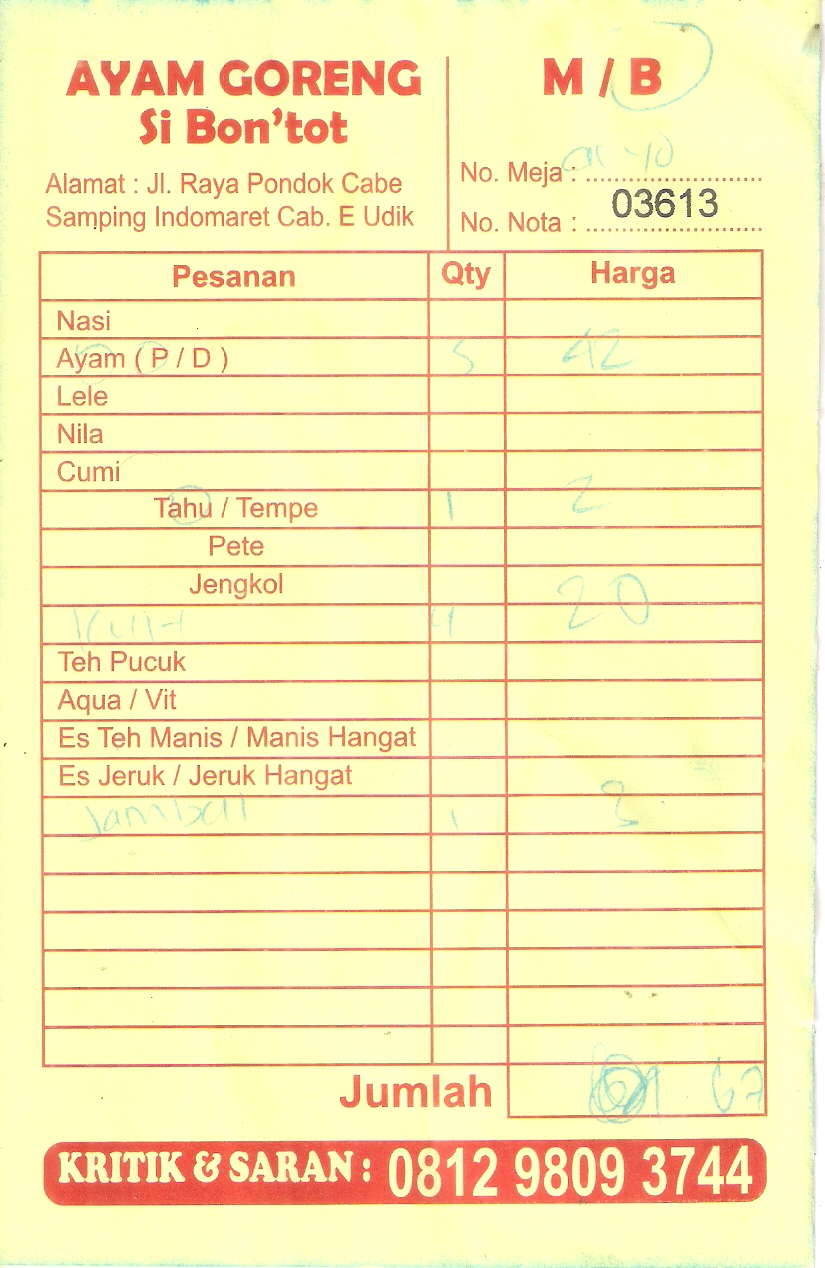 AYAM GORENG
Si Bon'tot
Alamat : Jl. Raya Pondok Cabe
Samping Indomaret Cab. E Udik
M / B
No. Meja :
No. Nota : 03613
Pesanan Qty Harga
Nasi
Ayam ( P / D ) 5 42
Lele
Nila
Cumi
Tahu / Tempe 1 2
Pete
Jengkol
Kulit 4 20
Teh Pucuk
Aqua / Vit
Es Teh Manis / Manis Hangat
Es Jeruk / Jeruk Hangat
Sambal 1 3
Jumlah 67
KRITIK & SARAN : 0812 9809 3744